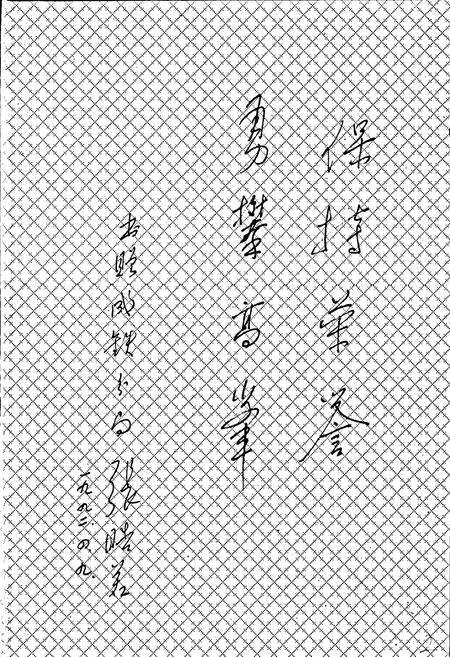 保持荣誉
勇攀高峯
书赠成铁分局 張皓若
一九九二.四.九.